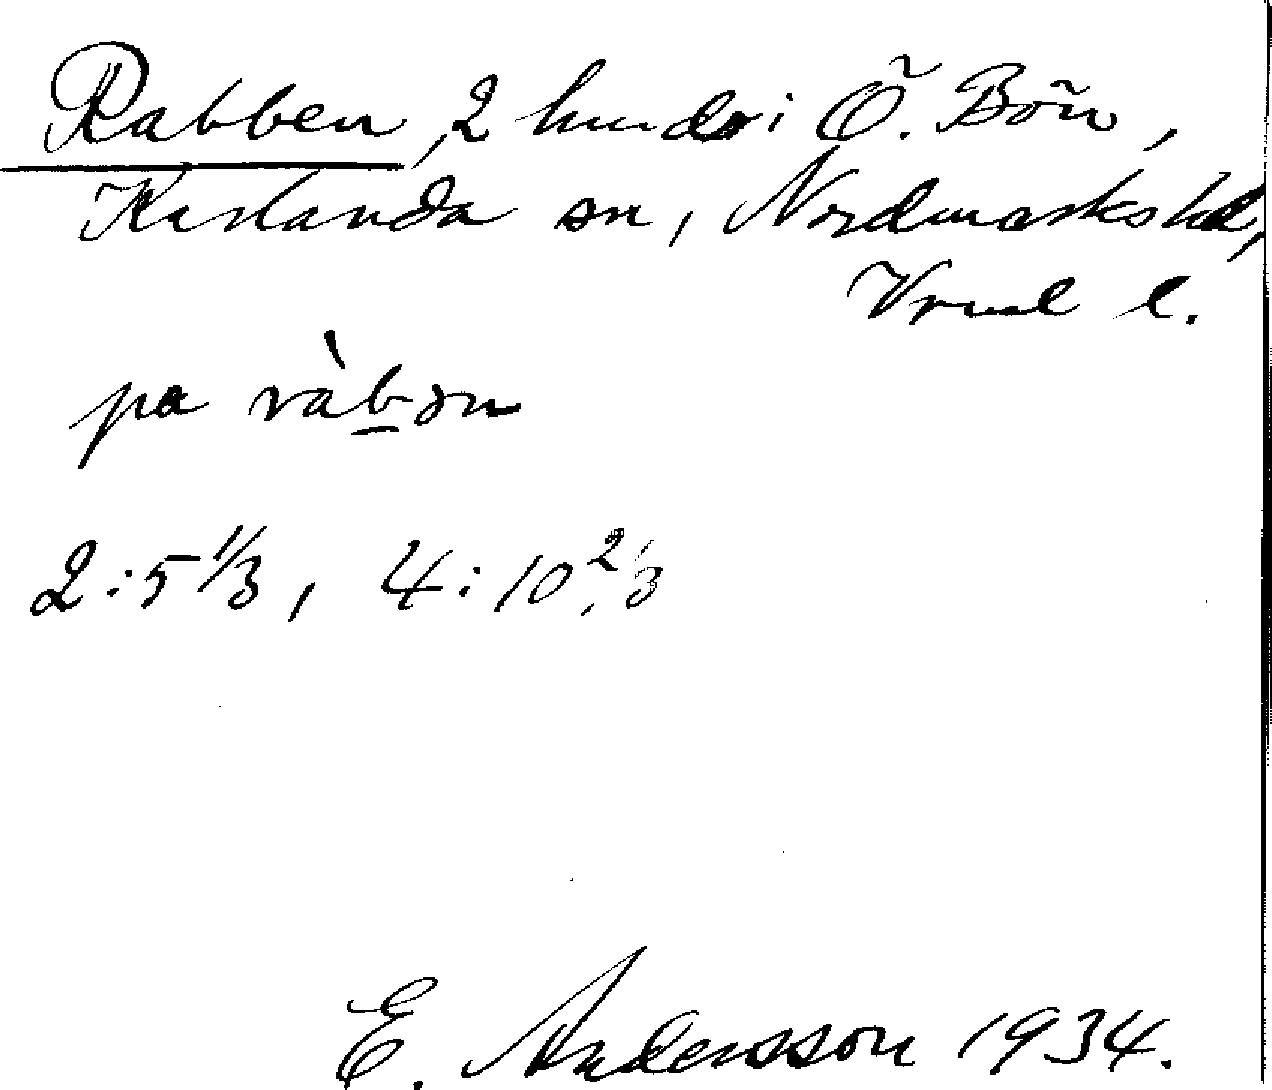 Rabben, 2 hmdr i Ö. Bön,
Karlanda sn, Nordmarks hd,
Vrml l.
pa ràbən
2:5 1/3, 4:10 2/3
E. Andersson 1934.